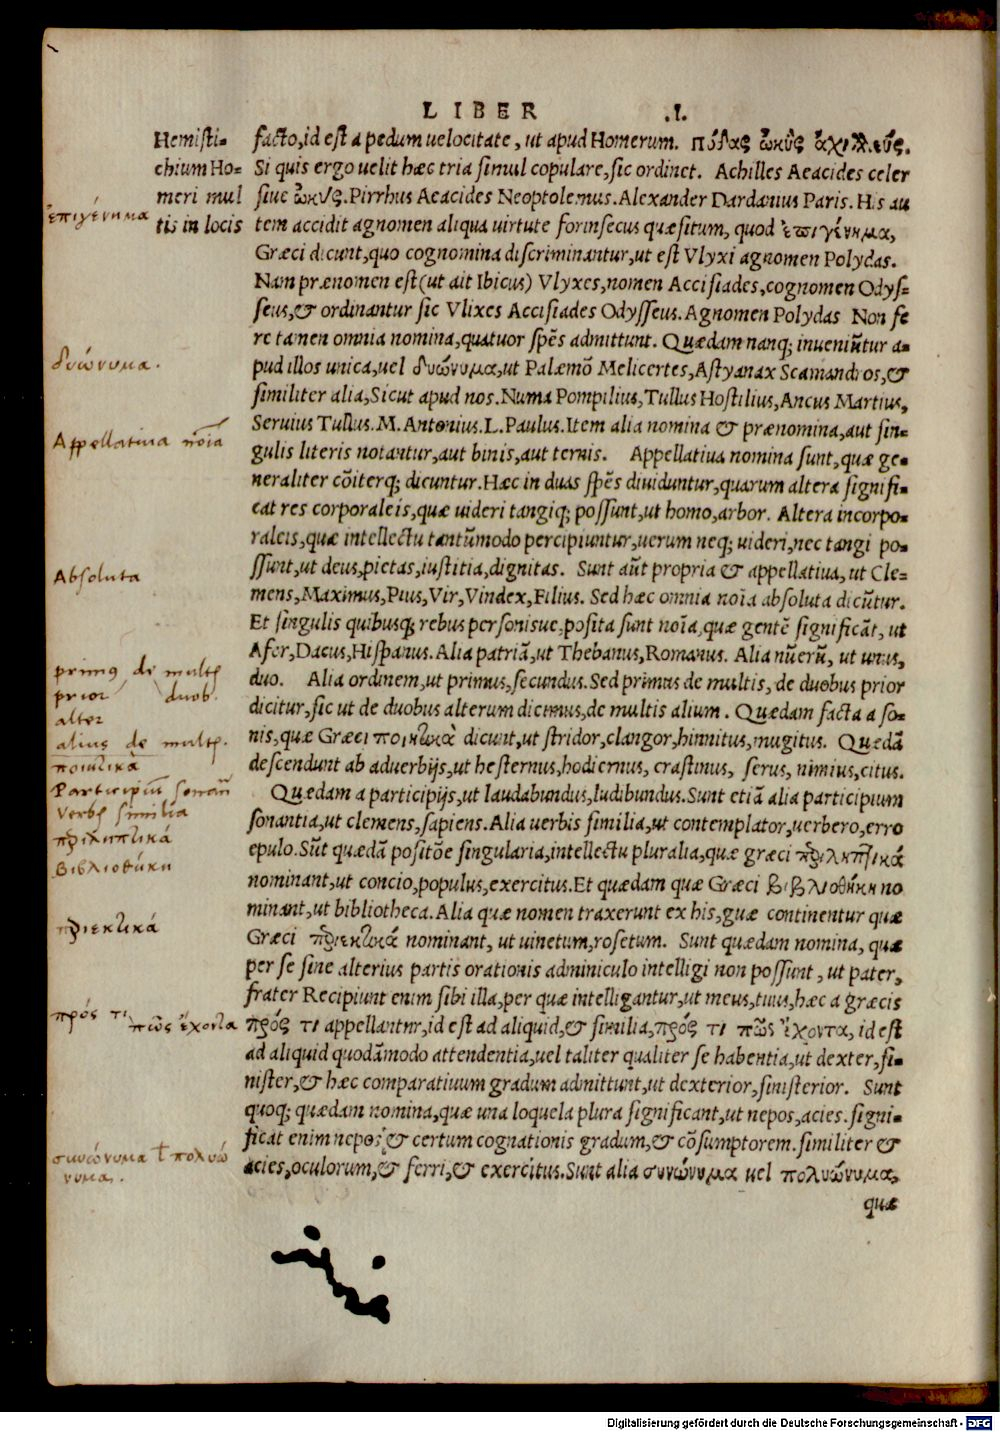 LIBER .I.
Hemisti-
chium Ho-
meri mul
tis in locis
facto, id est a pedum uelocitate, ut apud Homerum. πόδας ὠκὺς ἀχιλλεύς.
Si quis ergo uelit hæc tria simul copulare, sic ordinet. Achilles Aeacides celer
siue ὠκὺς. Pirrhus Aeacides Neoptolemus. Alexander Dardanius Paris. His au
tem accidit agnomen aliqua uirtute forinsecus quæsitum, quod ἐπιγένημα,
Græci dicunt, quo cognomina discriminantur, ut est Vlyxi agnomen Polydas.
Nam prænomen est (ut ait Ibicus) Vlyxes, nomen Accisiades, cognomen Odys-
seus, & ordinantur sic Vlixes Accisiades Odysseus. Agnomen Polydas Non fe
re tamen omnia nomina, quatuor spẽs admittunt. Quædam nanq; inueniũtur a-
pud illos unica, uel δυώνυμα, ut Palæmõ Melicertes, Astyanax Scamandros, &
similiter alia, Sicut apud nos. Numa Pompilius, Tullus Hostilius, Ancus Martius,
Seruius Tullus. M. Antonius. L. Paulus. Item alia nomina & prænomina, aut sin-
gulis literis notantur, aut binis, aut ternis. Appellatiua nomina sunt, quæ ge-
neraliter cõiterq; dicuntur. Hæc in duas spẽs diuiduntur, quarum altera signifi-
cat res corporaleis, quæ uideri tangiq; possunt, ut homo, arbor. Altera incorpo-
raleis, quæ intellectu tantũmodo percipiuntur, uerum neq; uideri, nec tangi po-
ssunt, ut deus, pietas, iustitia, dignitas. Sunt aũt propria & appellatiua, ut Cle-
mens, Maximus, Pius, Vir, Vindex, Filius. Sed hæc omnia noĩa absoluta dicũtur.
Et singulis quibusq; rebus personisue, posita sunt noĩa, quæ gentẽ significãt, ut
Afer, Dacus, Hispanus. Alia patriã, ut Thebanus, Romanus. Alia nũerũ, ut unus,
duo. Alia ordinem, ut primus, secundus. Sed primus de multis, de duobus prior
dicitur, sic ut de duobus alterum dicimus, de multis alium. Quædam facta a so-
nis, quæ Græci ποιητικὰ dicunt, ut stridor, clangor, hinnitus, mugitus. Quædã
descendunt ab aduerbijs, ut hesternus, hodiernus, crastinus, serus, nimius, citus.
Quædam a participijs, ut laudabundus, ludibundus. Sunt etiã alia participium
sonantia, ut clemens, sapiens. Alia uerbis similia, ut contemplator, uerbero, erro
epulo. Sũt quædã positõe singularia, intellectu pluralia, quæ græci περιληπτικά
nominant, ut concio, populus, exercitus. Et quædam quæ Græci βιβλιοθήκη no
minant, ut bibliotheca. Alia quæ nomen traxerunt ex his, guæ continentur quæ
Græci περιεκτικά nominant, ut uinetum, rosetum. Sunt quædam nomina, quæ
per se sine alterius partis orationis adminiculo intelligi non possunt, ut pater,
frater Recipiunt enim sibi illa, per quæ intelligantur, ut meus, tuus, hæc a græcis
πρός τι appellantnr, id est ad aliquid, & similia, πρός τι πῶς ἔχοντα, id est
ad aliquid quodãmodo attendentia, uel taliter qualiter se habentia, ut dexter, si-
nister, & hæc comparatiuum gradum admittunt, ut dexterior, sinisterior. Sunt
quoq; quædam nomina, quæ una loquela plura significant, ut nepos, acies. signi-
ficat enim nepos & certum cognationis gradum, & cõsumptorem. similiter &
acies, oculorum, & ferri, & exercitus. Sunt alia συνώνυμα uel πολυώνυμα,
quæ
ἐπιγένημα
δυώνυμα.
Appellatiua noĩa
Absoluta
primus de mult.
prior duob.
alter
alius de mult.
ποιητικὰ
Participiũ sonan̄
Verb. similia
περιληπτικά
Βιβλιοθήκη
περιεκτικά
πρός τι
πῶς ἔχοντα
συνώνυμα πολυώ
νυμα.
Digitalisierung gefördert durch die Deutsche Forschungsgemeinschaft - DFG